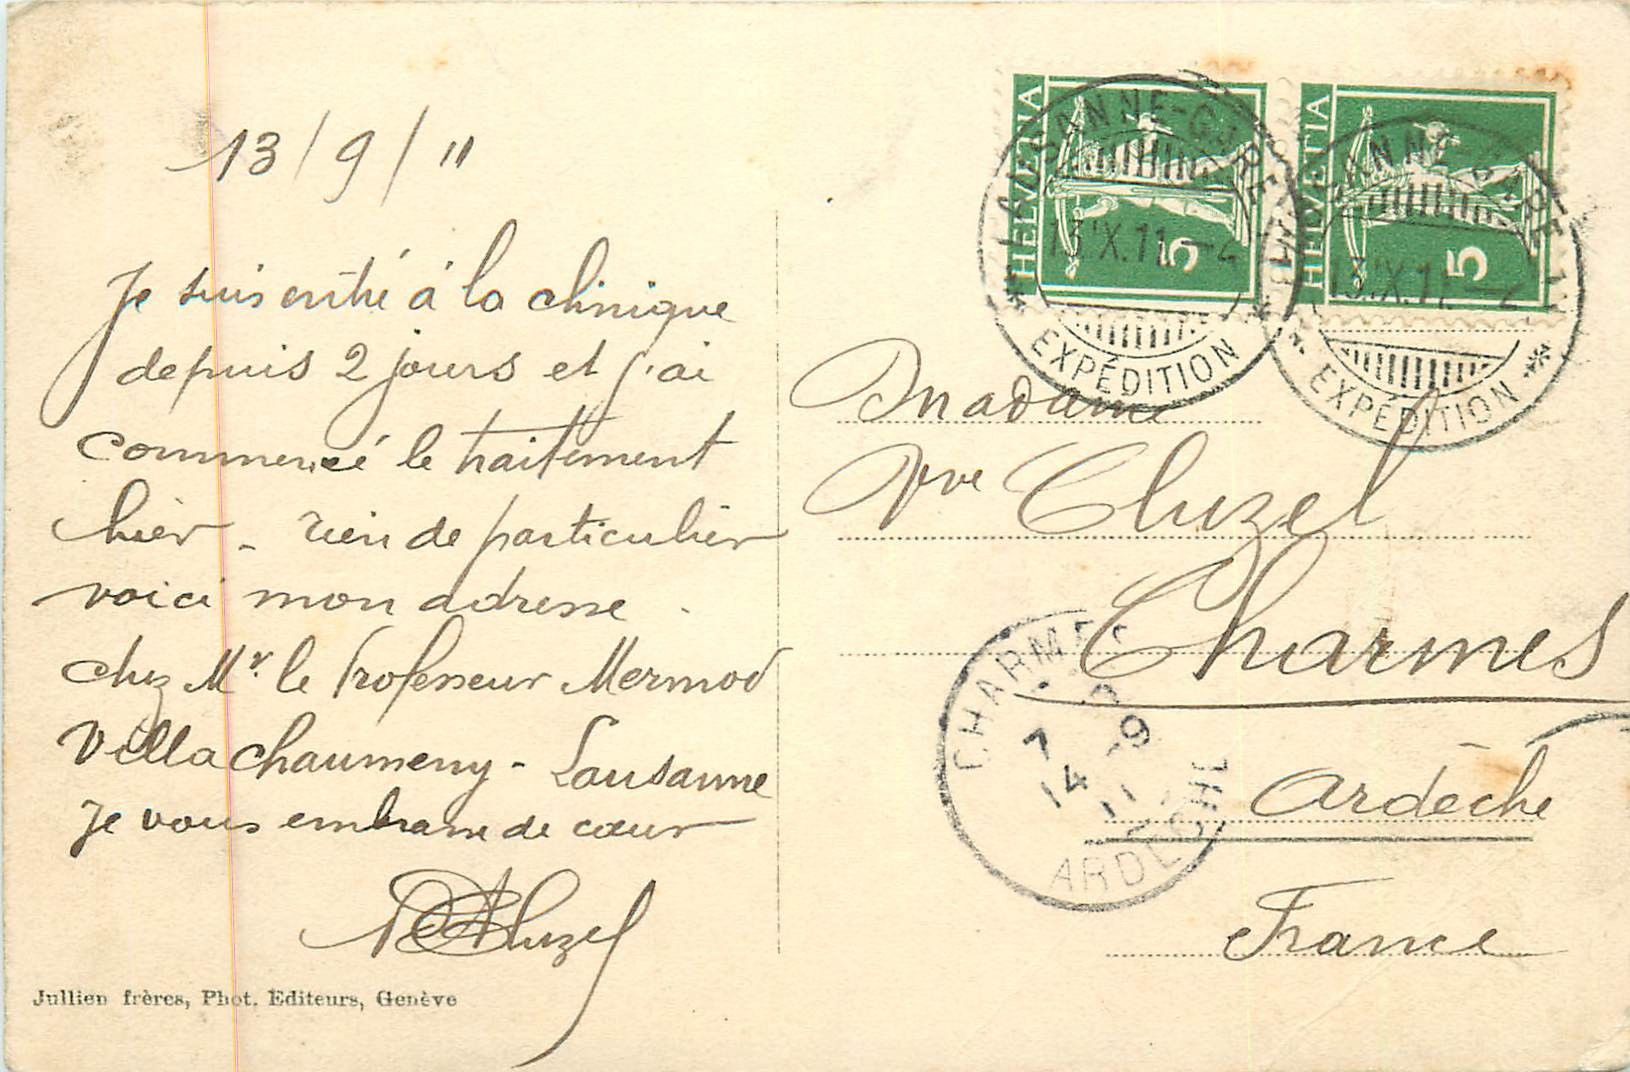 13/9/11
Je suis entré à la clinique
depuis 2 jours et j'ai
commencé le traitement
hier - rien de particulier
voici mon adresse
chez Mr. le Professeur Mermod
Villa Chaumeny - Lausanne
Je vous embrasse de cœur
Cluzel
Jullien frères, Phot. Editeurs, Genève
HELVETIA
5
HELVETIA
5
LAUSANNE-GARE
13.IX.11.-4
EXPÉDITION
LAUSANNE-GARE
13.IX.11.-4
EXPÉDITION
Madame
Vve Cluzel
Charmes
Ardèche
France
CHARMES
7
14 -9
11
ARDECHE